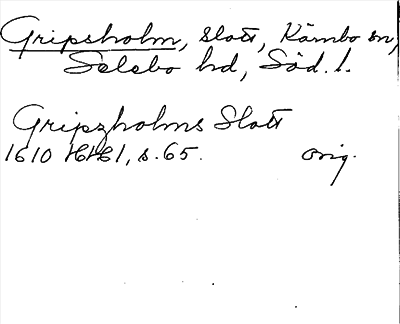 Gripsholm, slott, Kärnbo sn,
Selebo hd, Söd. l.
Gripzholms Slott
1610 HH 1, s. 65. orig.